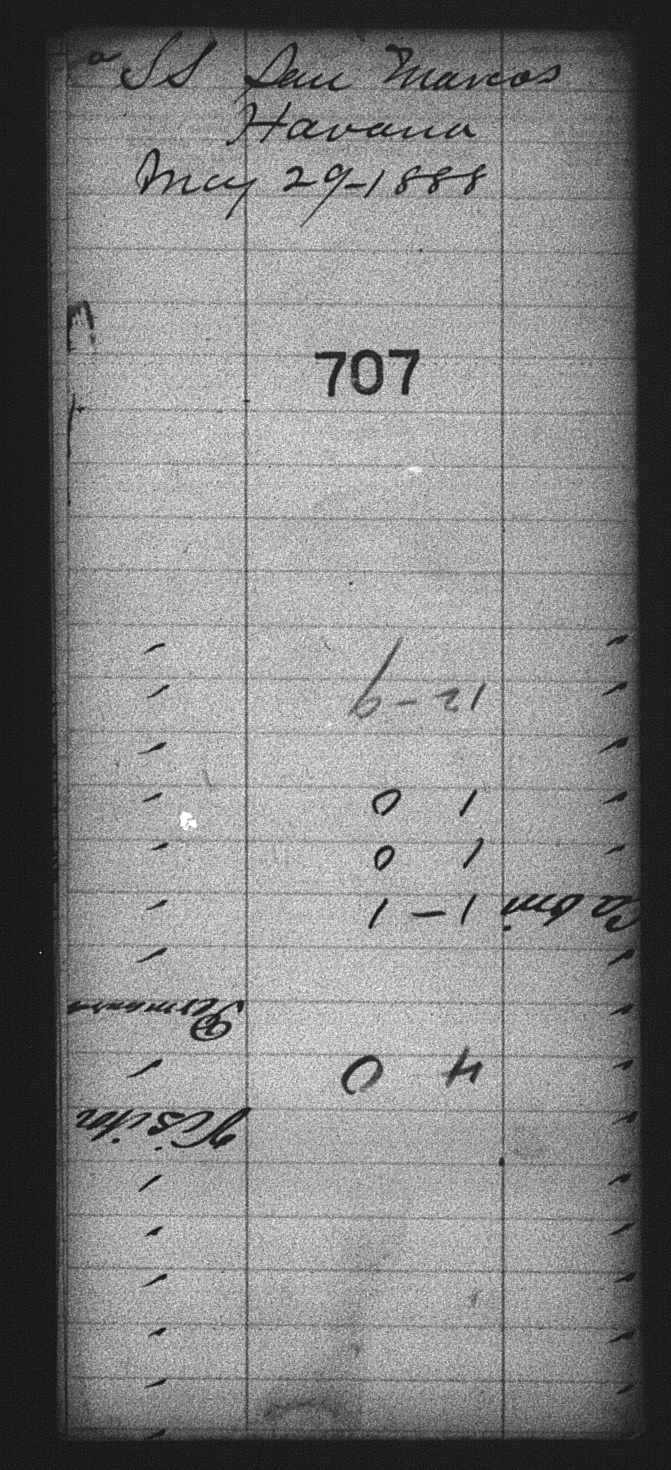 SS San Marcos
Havana
May 29-1888
707
12-9
1 0
1 0
Cabin 1-1
4 0
Visitor